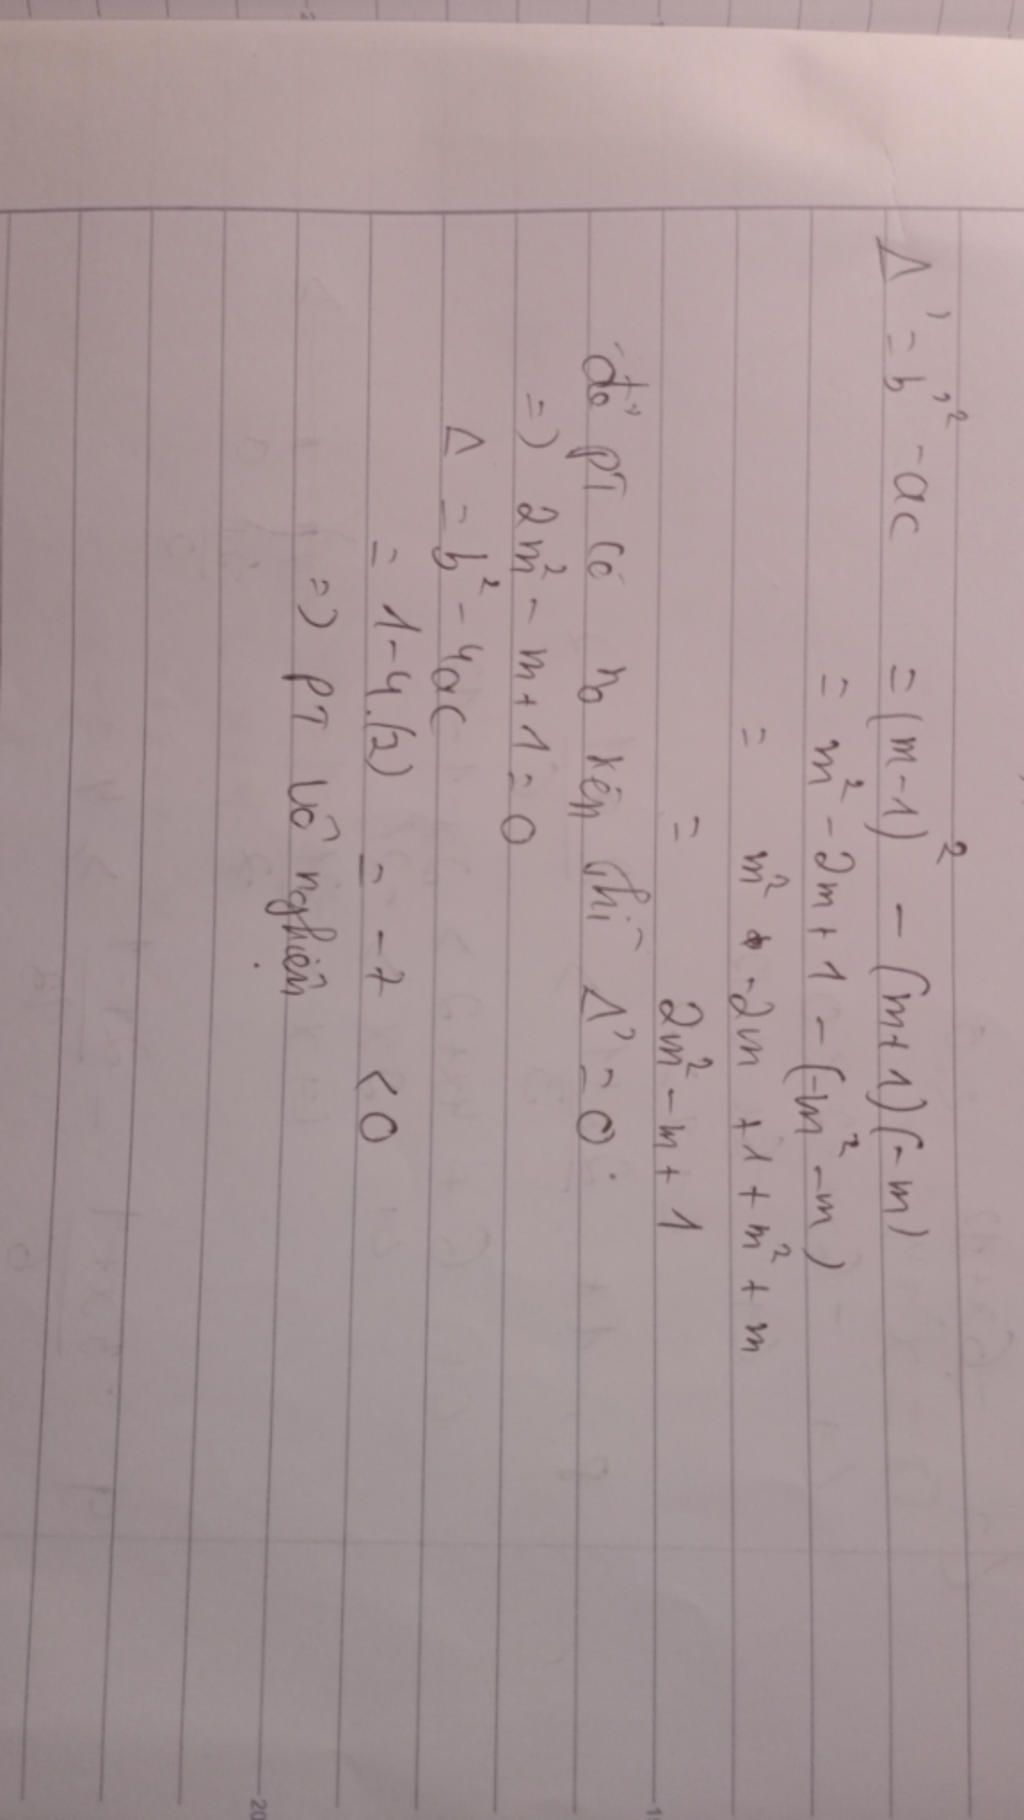 Δ' = b'² - ac = (m-1)² - (m+1)(-m)
= m² - 2m + 1 - (-m² - m)
= m² - 2m + 1 + m² + m
= 2m² - m + 1
để PT có no kép khi Δ' = 0.
=) 2m² - m + 1 = 0
Δ = b² - 4ac
= 1 - 4.(2) = -7 < 0
=) PT vô nghiệm
19
20